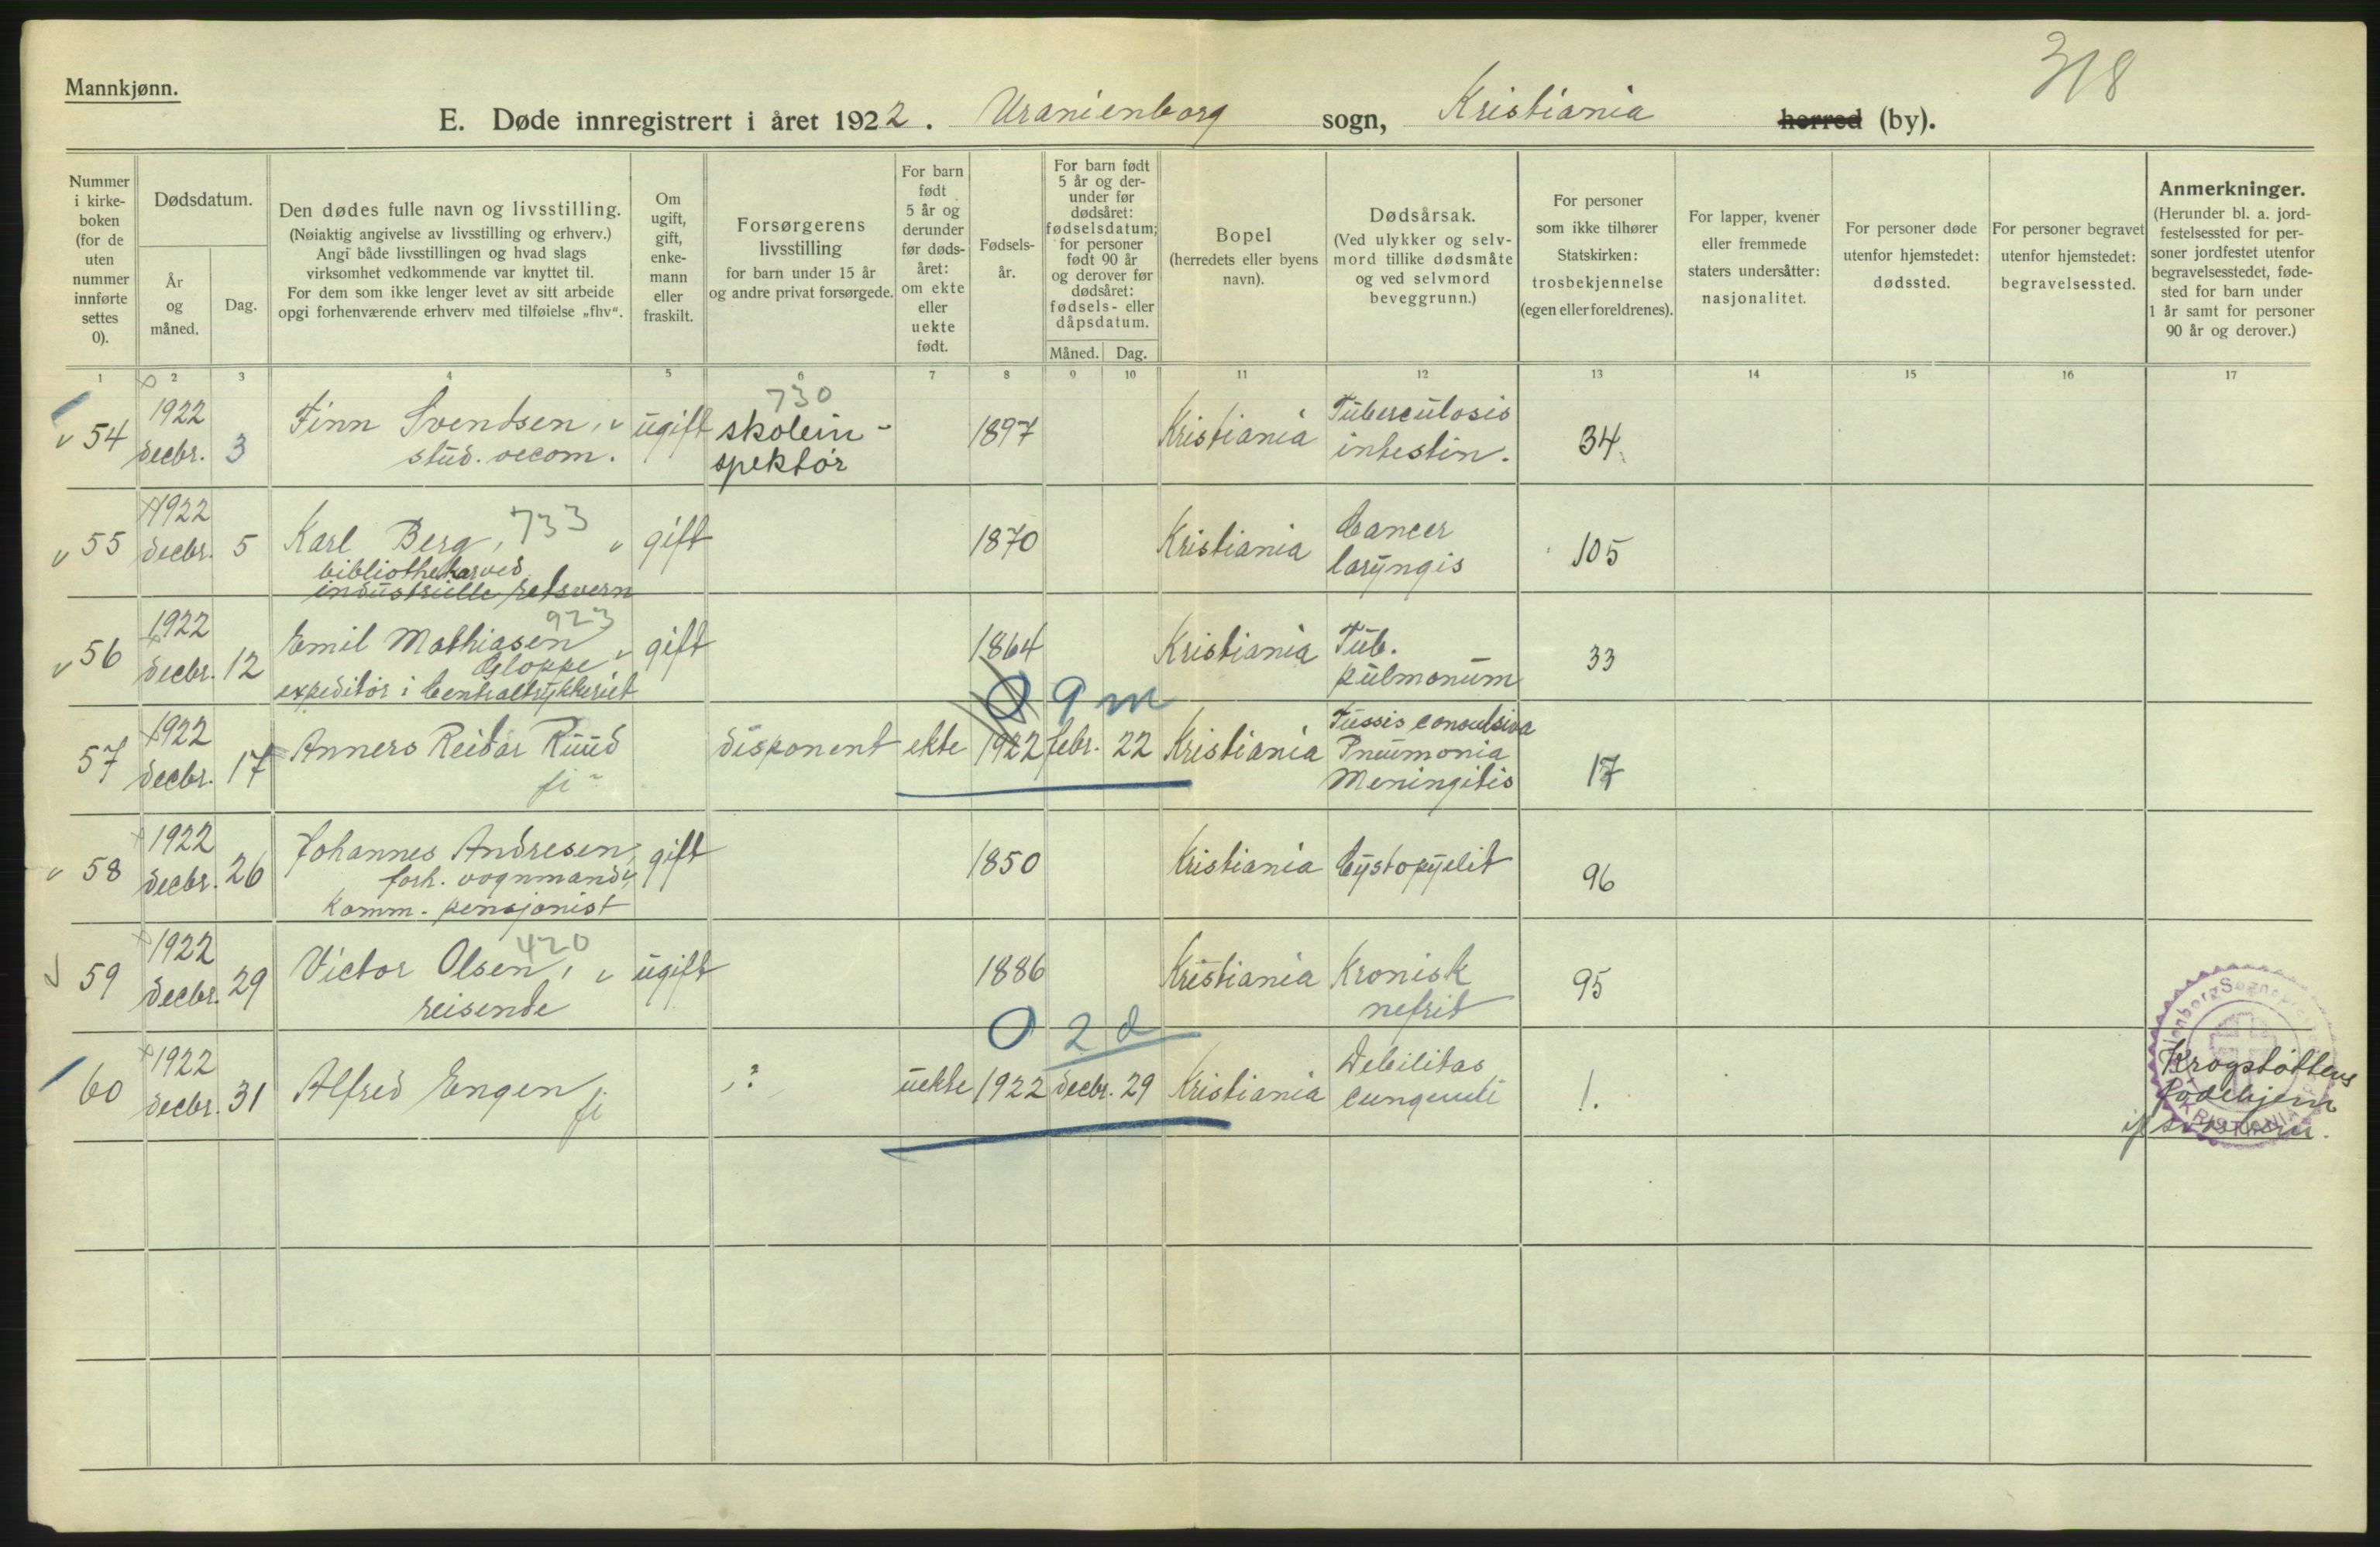 318
Mannkjønn.
E. Døde innregistrert i året 1922. Uranienborg sogn, Kristiania herred (by).
Nummer i kirke-boken (for de uten nummer innførte settes 0).
Dødsdatum.
År og måned.
Dag.
Den dødes fulle navn og livsstilling.
(Nøiaktig angivelse av livsstilling og erhverv.)
Angi både livsstillingen og hvad slags
virksomhet vedkommende var knyttet til.
For dem som ikke lenger levet av sitt arbeide
opgi forhenværende erhverv med tilføielse „fhv“.
Om ugift, gift, enke-mann eller fraskilt.
Forsørgerens
livsstilling
for barn under 15 år
og andre privat forsørgede.
For barn født 5 år og derunder før døds-året: om ekte eller uekte født.
Fødsels-år.
For barn født 5 år og der-under før dødsåret: fødselsdatum; for personer født 90 år og derover før dødsåret: fødsels- eller dåpsdatum.
Måned. Dag.
Bopel
(herredets eller byens navn).
Dødsårsak.
(Ved ulykker og selv-mord tillike dødsmåte og ved selvmord beveggrunn.)
For personer som ikke tilhører Statskirken: trosbekjennelse (egen eller foreldrenes).
For lapper, kvener eller fremmede staters undersåtter: nasjonalitet.
For personer døde utenfor hjemstedet: dødssted.
For personer begravet utenfor hjemstedet: begravelsessted.
Anmerkninger.
(Herunder bl. a. jord-festelsessted for per-soner jordfestet utenfor begravelsesstedet, føde-sted for barn under 1 år samt for personer 90 år og derover.)
1 2 3 4 5 6 7 8 9 10 11 12 13 14 15 16 17
730
54 1922 decbr. 3 Finn Svendsen, stud. oecom. ugift skolein-spektør 1897 Kristiania Tuberculosis intestin. 34
55 1922 decbr. 5 Karl Berg, 733 bibliothekar ved industrielle retsvern gift 1870 Kristiania Cancer laryngis 105
56 1922 decbr. 12 Emil Mathiasen 923 Gloppe expeditør i Centraltrykkeriet gift 1864 Kristiania Tub. pulmonum 33
0 9 m
57 1922 decbr. 17 Anners Reidar Ruud fi disponent ekte 1922 febr. 22 Kristiania Tussis convulsiva Pneumonia Meningitis 17
58 1922 decbr. 26 Johannes Andresen, forh. vognmand, Komm. pensjonist gift 1850 Kristiania Cystopyelit 96
59 1922 decbr. 29 Victor Olsen, 420 reisende ugift 1886 Kristiania Kronisk nefrit 95
0 2 d
60 1922 decbr. 31 Alfred Engen fi ? uekte 1922 decbr. 29 Kristiania Debilitas 1. Krogstøttens Fødehjem
KRISTIANIA